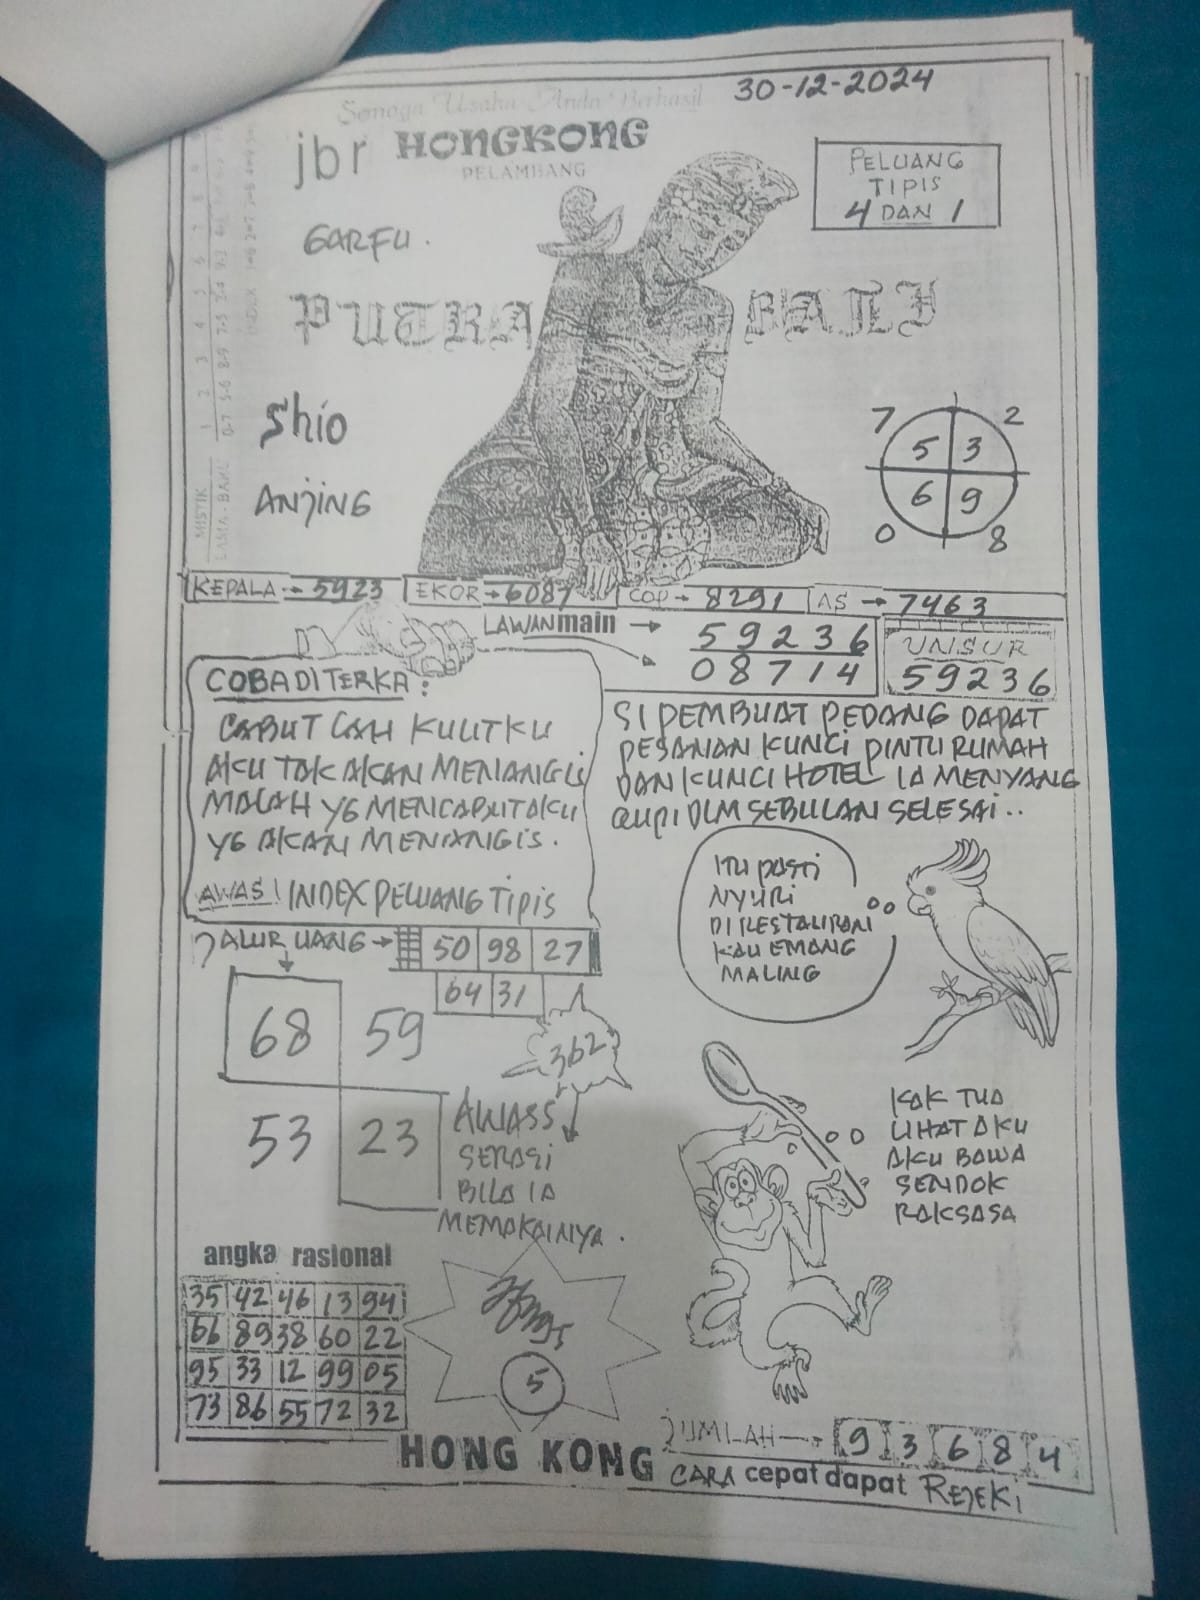 30-12-2024
Semoga Usaha Anda Berhasil
jbr HONGKONG
PELAMBANG
PELUANG
TIPIS
4 DAN 1
GARFU.
PUTRA BALI
Shio
ANJING
7 2
5 3
6 9
0 8
MISTIK
LAMA - BARU
INDEX
KEPALA → 5923 EKOR → 6087 COP → 8291 AS → 7463
LAWAN main → 59236
08714
UNSUR
59236
COBA DITERKA :
CABUT LAH KULITKU
AKU TAK AKAN MENANGIS
MALAH YG MENCABUTAKU
YG AKAN MENANGIS.
AWAS! INDEX PELUANG TIPIS
SI PEMBUAT PEDANG DAPAT
PESANAN KUNCI PINTU RUMAH
DAN KUNCI HOTEL IA MENYANG
GUPI DLM SEBULAN SELESAI..
ITU PASTI
NYURI
DI RESTAURAN
KAU EMANG
MALING
JALUR UANG → 50 98 27
64 31
68 59
362
53 23
AWASS
SERASI
BILA IA
MEMAKAINYA.
KAK TUA
LIHAT AKU
AKU BAWA
SENDOK
RAKSASA
angka rasional
35 42 46 13 94
66 89 38 60 22
95 33 12 99 05
73 86 55 72 32
5
JUMLAH → 9 3 6 8 4
HONG KONG
CARA cepat dapat REJEKI